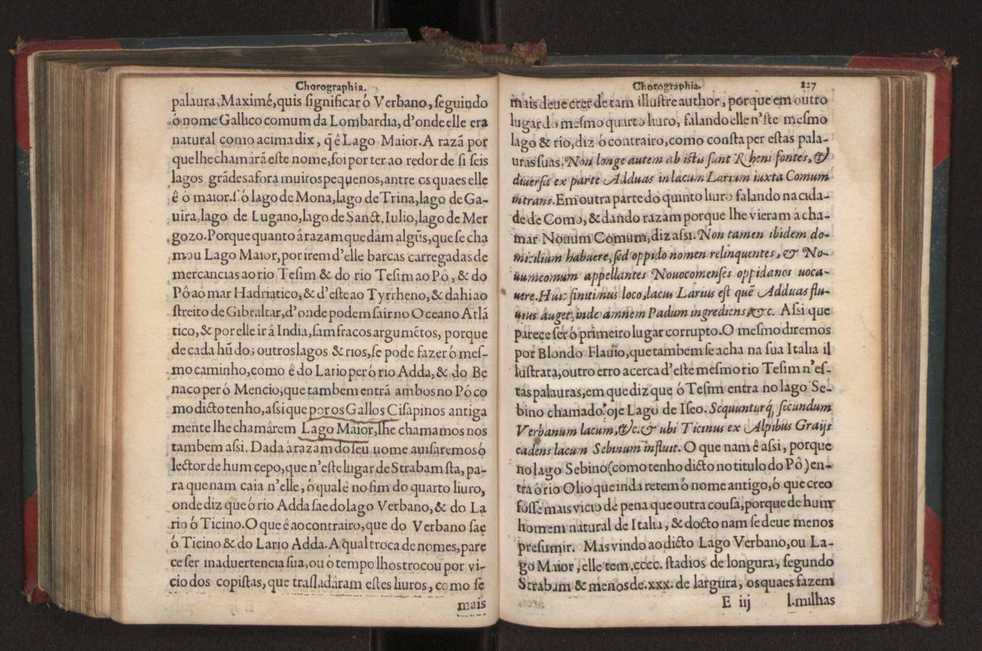 Chorographia.
palaura, Maximé, quis significar ó Verbano, seguindo
o nome Gallico comum da Lombardia, d'onde elle era
natural como acima dix, q̃ ê Lago Maior. A razã por
que lhe chamarã este nome, foi por ter ao redor de si seis
lagos grãdes afora muitos pequenos, antre os quaes elle
ê o maior. s. ó lago de Mona, lago de Trina, lago de Ga-
uira, lago de Lugano, lago de Sanct. Iulio, lago de Mer
gozo. Porque quanto â razam que dam algũs, que se cha
mou Lago Maior, por irem d'elle barcas carregadas de
mercancias ao rio Tesim & do rio Tesim ao Pô, & do
Pô ao mar Hadriatico, & d'este ao Tyrrheno, & dahi ao
streito de Gibraltar, d'onde podem sair no Oceano Atlã
tico, & por elle ir â India, sam fracos argumẽtos, porque
de cada hũ dos outros lagos & rios, se pode fazer ó mes-
mo caminho, como ê do Lario per ó rio Adda, & do Be
naco per ó Mencio, que tambem entrã ambos no Pó co
mo dicto tenho, assi que por os Gallos Cisapinos antiga
mente lhe chamárem Lago Maior, lhe chamamos nos
tambem assi. Dada â razam do seu nome auisaremos ô
lector de hum cepo, que n'este lugar de Strabam sta, pa-
ra que nam caia n'elle, o qual ê no fim do quarto liuro,
onde diz que ó rio Adda sae do lago Verbano, & do La
rio ó Ticino. O que ê ao contrairo, que do Verbano sae
ó Ticino & do Lario Adda. A qual troca de nomes, pare
ce ser inaduertencia sua, ou ó tempo lhos trocou por vi-
cio dos copistas, que trasladáram estes liuros, como se
mais
Chorographia. 127
mais deue crer de tam illustre author, porque em outro
lugar do mesmo quarto liuro, falando elle n'ste mesmo
lago & rio, diz ó contrairo, como consta per estas pala-
uras suas. Non longe autem ab istis sunt Rheni fontes, &
diuersa ex parte Adduas in lacum Larium iuxta Comum
intrans. Em outra parte do quinto liuro falando na cida-
de de Como, & dando razam porque lhe vieram a cha-
mar Nouum Comum, diz assi. Non tamen ibidem do-
micilium habuere, sed oppido nomen relinquentes, & No-
uumcomum appellantes Nouocomenses oppidanos uoca-
uere. Huic finitimus loco, lacus Larius est quẽ Adduas flu-
uius auget, inde amnem Padum ingrediens &c. Assi que
parece ser ó primeiro lugar corrupto. O mesmo diremos
por Blondo Flauio, que tambem se acha na sua Italia il
lustrata, outro erro acerca d'este mesmo rio Tesim n'es-
tas palauras, em que diz que ó Tesim entra no lago Se-
bino chamado oje Lago de Iseo. Sequunturq; secundum
Verbanum lacum, &c. & ubi Ticinus ex Alpibus Graijs
cadens lacum Sebinum influit. O que nam ê assi, porque
no lago Sebino (como tenho dicto no titulo do Pô) en-
tra ó rio Olio que inda retem ó nome antigo, ô que creo
fosse mais vicio de pena que outra cousa, porque de hum
homem natural de Italia, & docto nam se deue menos
presumir. Mas vindo ao dicto Lago Verbano, ou La-
go Maior, elle tem, cccc. stadios de longura, segundo
Strabam & menos de. xxx. de largura, os quaes fazem
E iij l. milhas